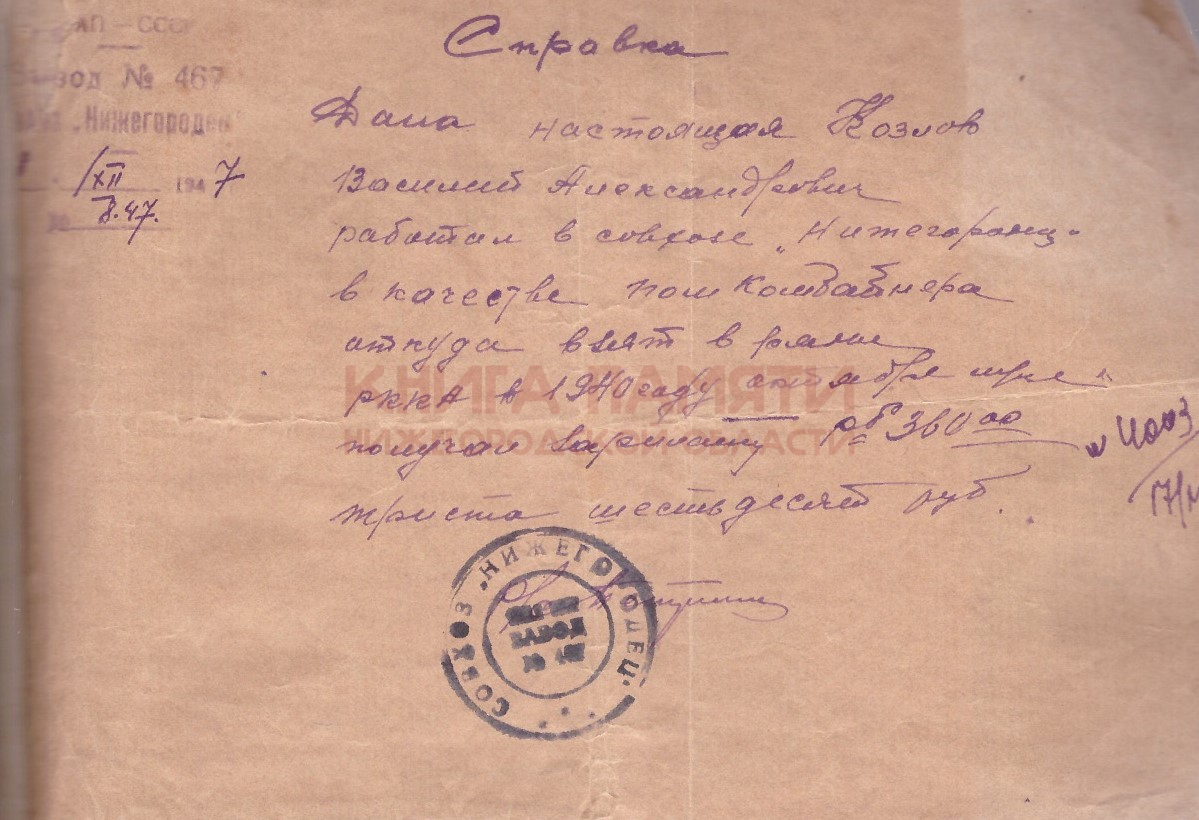 АП — СССР
Завод № 467
„Нижегородец"
/XII 1947
№ 8.47.
Справка
Дана настоящая Козлов
Василий Александрович
работал в совхозе „Нижегородец"
в качестве пом Комбайнера
откуда взят в ряды
РККА в 1940 году октября м-це
получал Зарплату рб 360 00
триста шестьдесят руб.
КНИГА ПАМЯТИ
НИЖЕГОРОДСКОЙ ОБЛАСТИ
СОВХОЗ „НИЖЕГОРОДЕЦ"
ЗАВОД
№ 467